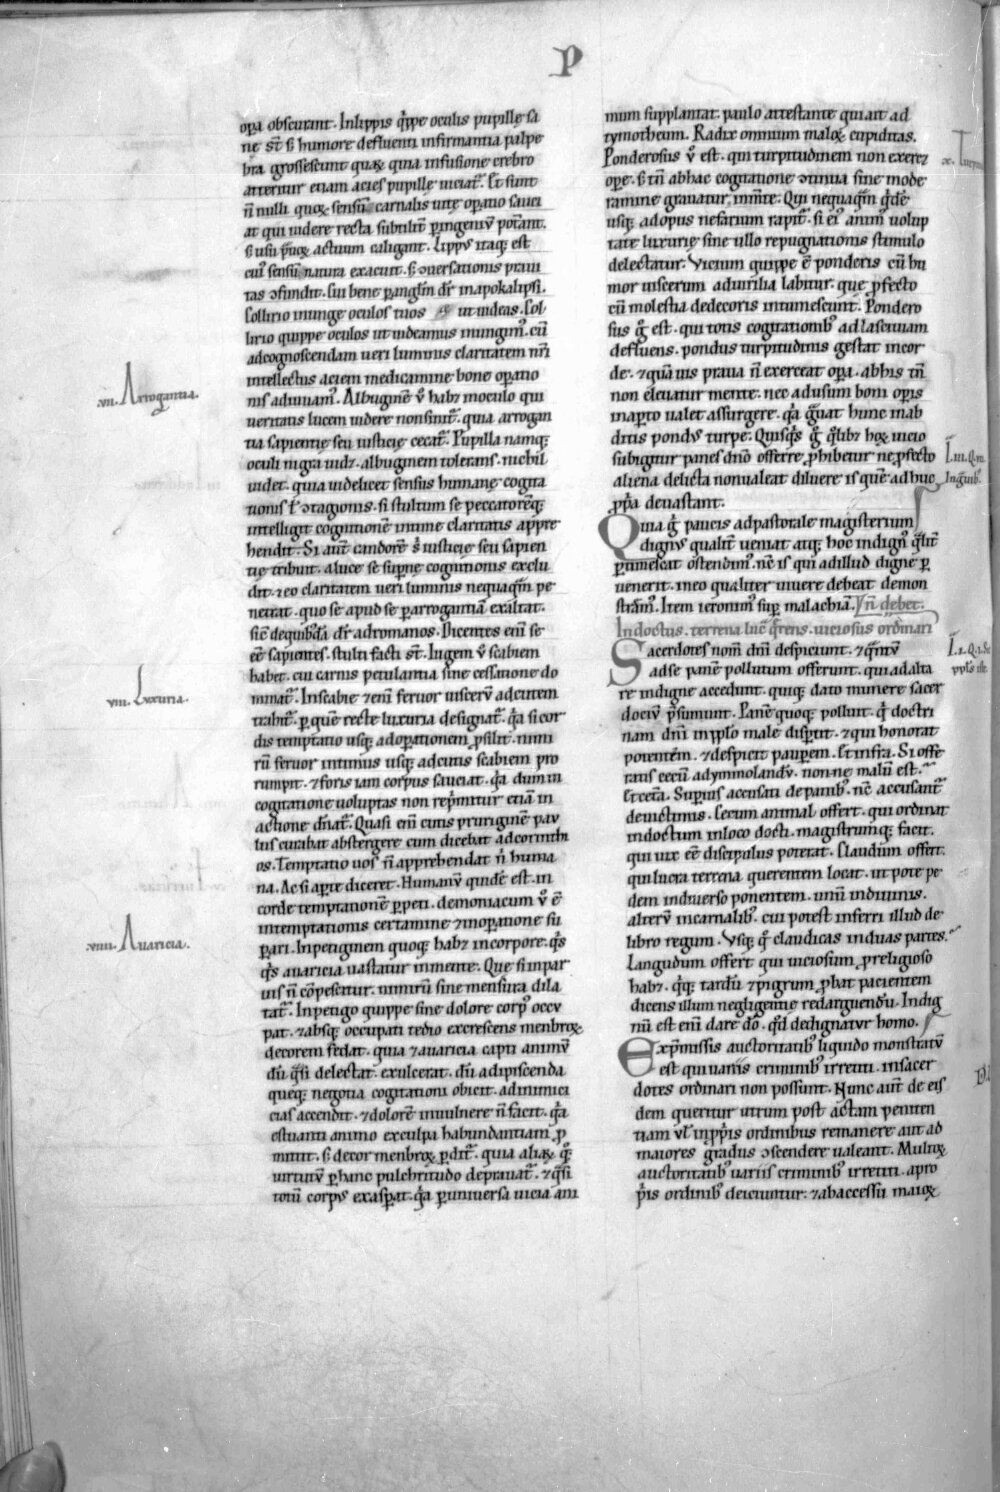 P
opa obscurant. In lippis q̇ppe oculis pupillę sa
ne st̄ s; humore defluenti infirmantia palpe
bra grossescunt quaꝝ quia infusione crebro
atteritur etiam acies pupillę uiciat̄. Et sunt
n̄ nulli quoꝝ sensū carnalis uitę opatio sauci
at qui uidere recta subtilit̄ p ingeniū pot̄ant.
s; usu p̄uoꝝ actuum caligant. Lippꝰ itaq; est
cuiꝰ sensū natura exacuit. s; ꝯuersationis praui
tas ꝯfundit. Cui bene p anglm̄ dr̄ in apokalipsi.
Collirio inunge oculos tuos ut uideas. Col
lirio quippe oculos ut uideamus inungimꝰ. cū
ad cognoscendam ueri luminis claritatem nr̄i
intellectus aciem medicamine bone opatio
nis adiuuamꝰ. Albuginē v̊ habꝫ in oculo qui
ueritatis lucem uidere non sinit̄. quia arrogan
tia sapientię seu iusticię cecat̄. Pupilla namq;
oculi nigra uidꝫ. albuginem tolerans. nichil
uidet. quia uidelicet sensus humane cogita
tionis ł ꝯtagionis. si stultum se peccatorēq;
intelligit cognitionē intime claritatis appre
hendit. Si aut̄ candorē s̊ iusticie seu sapien
tię tribuit. a luce se supnę cognitionis exclu
dit. ⁊ eo claritatem ueri luminis nequaq̄m pe
netrat. quo se apud se p arrogantiā exaltat.
sic̄ de quibꝰdā dr̄ ad romanos. Dicentes eni se
eē sapientes. stulti facti st̄. Iugem v̊ scabiem
habet. cui carnis petulantia sine cessatione do
minat̄. In scabie ⁊enī feruor uiscerū ad cutem
trahit̄. p quē recte luxuria designat̄. q̇a si cor
dis temptatio usq; ad opationem psilit. nimi
rū feruor intimus usq; ad cutis scabiem pro
rumpit. ⁊ foris iam corpus sauciat. q̇a dum in
cogitatione uoluptas non rep̄mitur etiā in
actione dn̄at̄. Quasi enī cutis pruriginē pau
lus curabat abstergere cum dicebat ad corinthi
os. Temptatio uos n̄ apprehendat n̊ huma
na. Ac si apte diceret. Humanū quidē est. in
corde temptationē ppeti. demoniacum v̊ ē
in temptationis certamine ⁊ in opatione su
pari. Inpetiginem quoq; habꝫ in corpore. q̊s
q̊s auaricia uastatur in mente. Que si in par
uis n̄ cōpescitur. nimirū sine mensura dila
tat̄. Inpetigo quippe sine dolore corpꝰ occu
pat. ⁊ absq; occupati tedio excrescens menbroꝝ
decorem fedat. quia ⁊ auaricia capti animū
dū q̇si delectat. exulcerat. dū adipiscenda
queq; negotia cogitationi obicit. ad inimici
cias accendit. ⁊ dolorē in uulnere n̄ facit. q̇a
estuanti animo ex culpa habundantiam p
mittit. s; decor menbroꝝ pdit̄. quia aliaꝝ q̊;
uirtutū p hanc pulchritudo deprauat̄. ⁊ q̇si
totū corpꝰ exaspat. q̇a p uniuersa uicia ani
mum supplantat. paulo attestante qui ait ad
tymotheum. Radix omnium maloꝝ cupiditas.
Ponderosus v̊ est. qui turpitudinem non exercꝫ
ope. s; tn̄ ab hac cogitatione ꝯtinua sine mode
ramine grauatur in m̄te. Qui nequaq̄m q̇dē
usq; ad opus nefarium rapit̄. si eiꝰ animꝰ uolup
tate luxurie sine ullo repugnationis stimulo
delectatur. Vicium quippe ē ponderis cū hu
mor uiscerum ad uirilia labitur. que pfecto
cū molestia dedecoris intumescunt. Pondero
sus g̊ est. qui totis cogitationibꝰ ad lasciuiam
defluens. pondus turpitudinis gestat in cor
de. ⁊ quāuis praua n̄ exerceat opa. ab his tn̄
non eleuatur mente. nec ad usum boni opis
in apto ualet assurgere. q̇a g̊uat hunc in ab
ditis pondus turpe. Quisq̊s g̊ q̊libꝫ hoꝝ uicio
subigitur panes dn̄o offerre phibetur ne pfecto
aliena delicta non ualeat diluere is quē adhuc
ppa deuastant.
Quia g̊ paucis ad pastorale magisterium
dignꝰ qualit̄ ueniat atq; hoc indignꝰ q̊lit̄
ptimescat ostendimꝰ. nc̄ is qui ad illud digne p
uenerit. in eo qualiter uiuere debeat demon
stram̄ꝰ. Item ieronimꝰ sup malachiā. N̄ debet.
Indoctus. terrena luc̄ q̄rens. uiciosus ordinari
Sacerdotes nom̄ dn̄i despiciunt. ⁊ q̄ntū
ad se panē pollutum offerunt. qui ad alta
re indigne accedunt. quiq; dato munere sacer
dociū p̄sumunt. Panē quoq; polluit. q̇ doctri
nam dn̄i in pplo male disptit. ⁊ qui honorat
potentēm. ⁊ despicit paupem. Et infra. Si offe
ratis cecū ad ymmolandū. non ne malū est.
Et cet̄a. Supius accusati de panibꝰ. nc̄ accusant̄
de uictimis. Cecum animal offert. qui ordinat
indoctum in loco docti. magistrumq; facit.
qui uix eē discipulus poterat. Claudum offert.
qui lucra terrena querentem locat. ut pote pe
dem in diuerso ponentem. unū in diuinis.
alterū in carnalibꝰ. cui potest inferri illud de
libro regum. Vsq; q̊ claudicas in duas partes.
Languidum offert qui uiciosum p religioso
habꝫ. q̇q; tardū ⁊ pigrum pbat pacientem
dicens illum negligentie redarguendū. Indig
nū est enī dare dō. q̊d dedignatur homo.
Exp̄missis auctoritatibꝰ liquido monstratū
est qui uariis criminibꝰ irretiti. in sacer
dotes ordinari non possunt. Nunc aut̄ de eis
dem queritur utrum post actam peniten
tiam uł in ppis ordinibus remanere aut ad
maiores gradus ꝯscendere ualeant. Multoꝝ
auctoritatibꝰ uariis criminibꝰ irretiti. a pro
p̊is ordinibꝰ deiciuntur. ⁊ ab accessu maioꝝ
.vii. Arrogantia.
.viii. Luxuria.
.viiii. Auaricia.